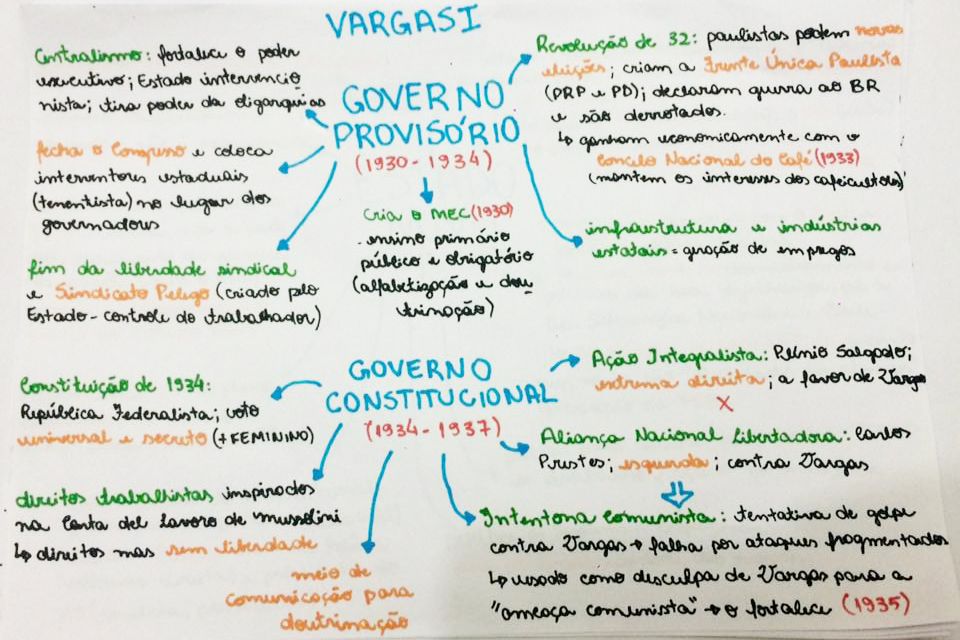 VARGAS I
Centralismo: fortalece o poder
executivo; Estado intervencio
nista; tira poder da oligarquias
fecha o Congresso e coloca
interventores estaduais
(tenentista) no lugar dos
governadores
fim da liberdade sindical
e Sindicato Pelego (criado pelo
Estado - controle do trabalhador)
GOVERNO
PROVISÓRIO
(1930 - 1934)
cria o MEC (1930)
. ensino primário
público e obrigatório
(alfabetização e dou
trinação)
Revolução de 32: paulistas pedem novas
eleições; criam a Frente Única Paulista
(PRP e PD); declaram guerra ao BR
e são derrotados.
↳ ganham economicamente com o
Concelo Nacional do Café (1933)
(mantem os interesses dos cafeicultores)
infraestrutura e indústrias
estatais = geração de empregos
GOVERNO
CONSTITUCIONAL
(1934 - 1937)
Constituição de 1934:
República Federalista; voto
universal e secreto (+ FEMININO)
direitos trabalhistas inspirados
na Carta del Lavoro de Mussolini
↳ direitos mas sem liberdade
meio de
comunicação para
doutrinação
Ação Integralista: Plínio Salgado;
extrema direita; a favor de Vargas
X
Aliança Nacional Libertadora: Carlos
Prestes; esquerda; contra Vargas
Intentona Comunista: tentativa de golpe
contra Vargas → falha por ataques fragmentados
↳ usado como desculpa de Vargas para a
"ameaça comunista" → o fortalece (1935)